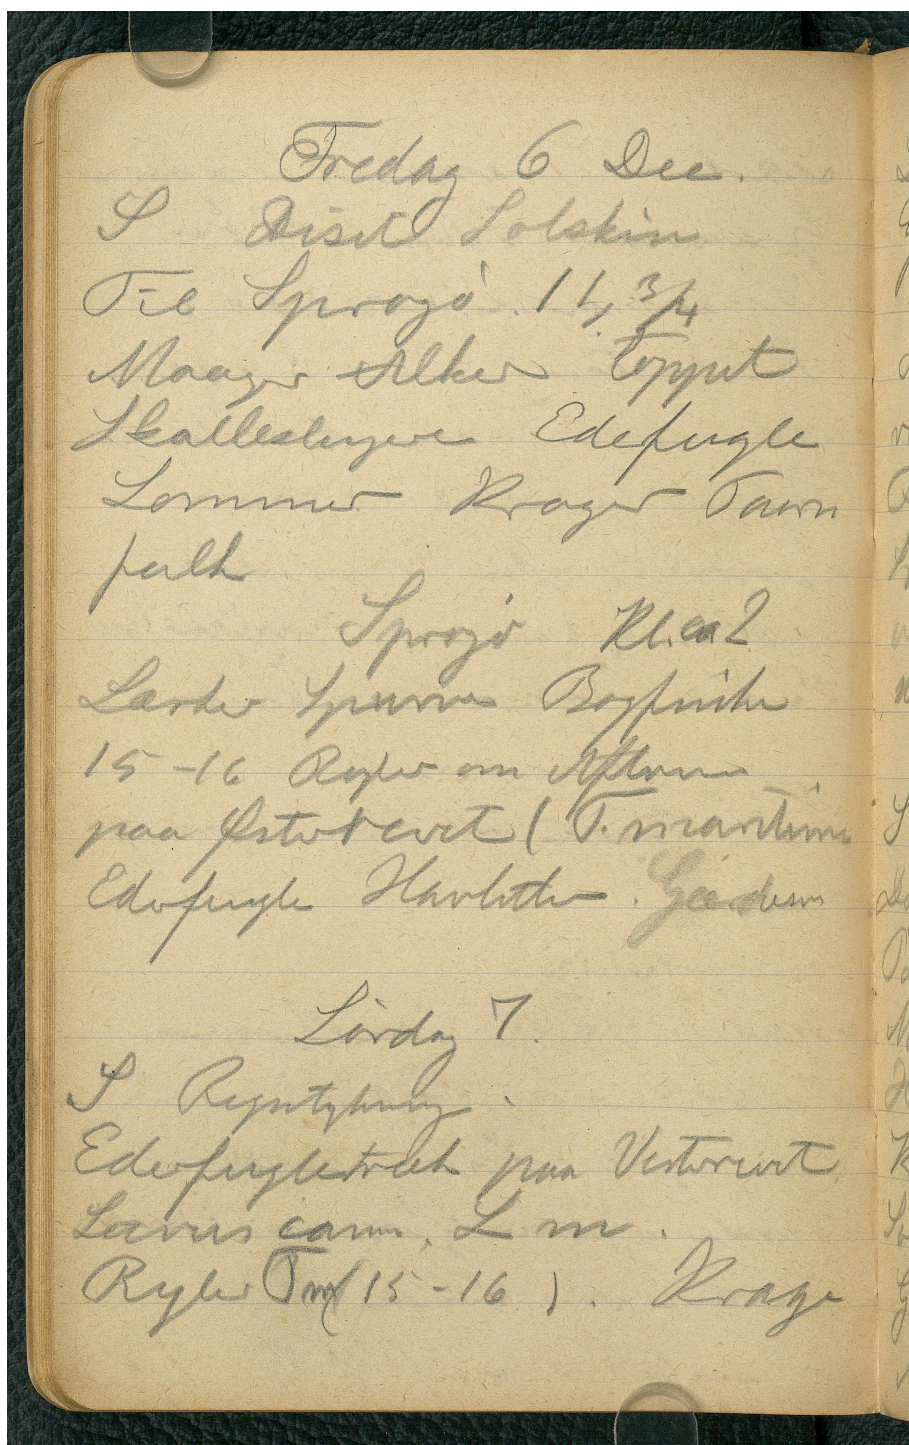 Fredag 6 Dec.
S Diset Solskin
Til Sprogö 11, 3/4
Maager Alker Toppet
Skalleslugere Edefugle
Lommer Krager Taarn
falk
Sprogö Kl. ca 2
Lærker Spurve Bogfinke
15-16 Ryler om Aftnen
paa Østerrevet (T. maritima
Ederfugle Havlitter.
Lördag 7.
S Regntykning.
Ederfugletræk paa Vesterrevet
Larus canus. L m.
Ryler T m (15-16). Krage